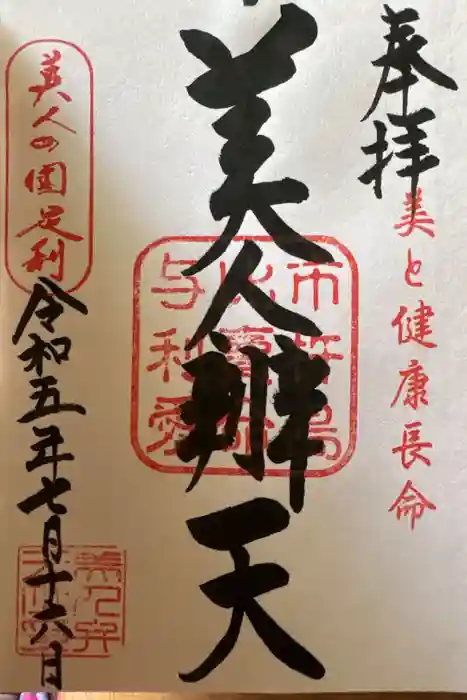 奉拝
美と健康長命
美人辦天
美人の国足利
令和五年七月十六日